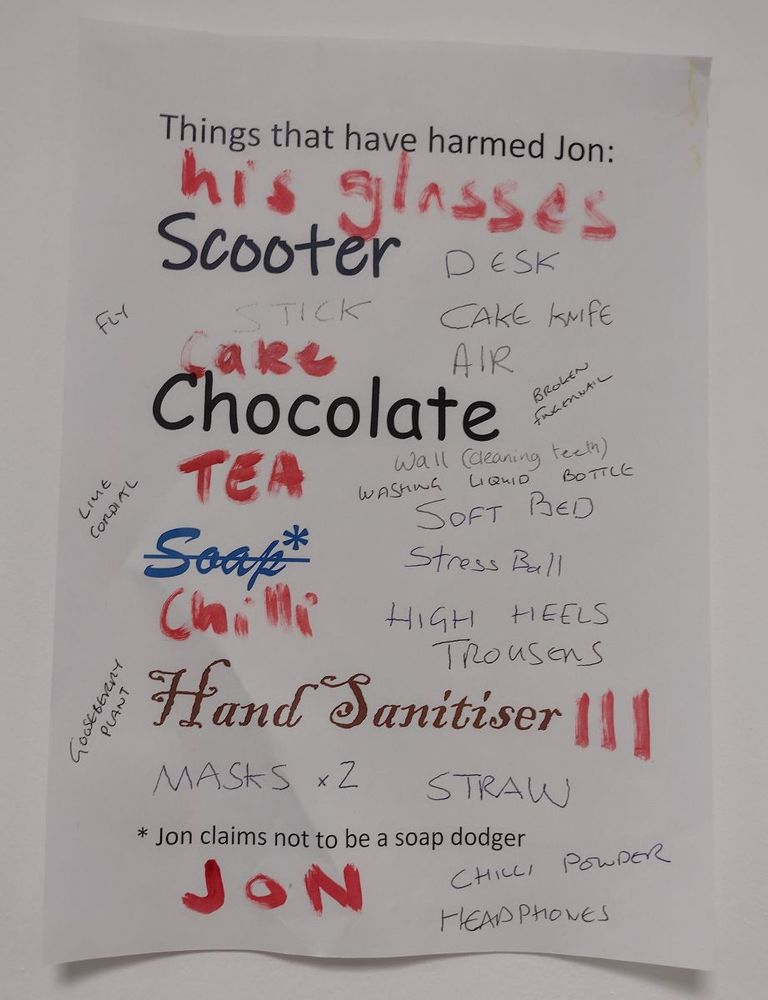 Things that have harmed Jon:
his glasses
Scooter
DESK
FLY
STICK
CAKE KNIFE
Cake
AIR
Chocolate
BROKEN
FINGERNAIL
TEA
Wall (cleaning teeth)
WASHING LIQUID BOTTLE
LIME
CORDIAL
SOFT BED
Soap*
Stress Ball
Chilli
HIGH HEELS
TROUSERS
GOOSEBERRY
PLANT
Hand Sanitiser III
MASKS x2
STRAW
* Jon claims not to be a soap dodger
JON
CHILLI POWDER
HEADPHONES